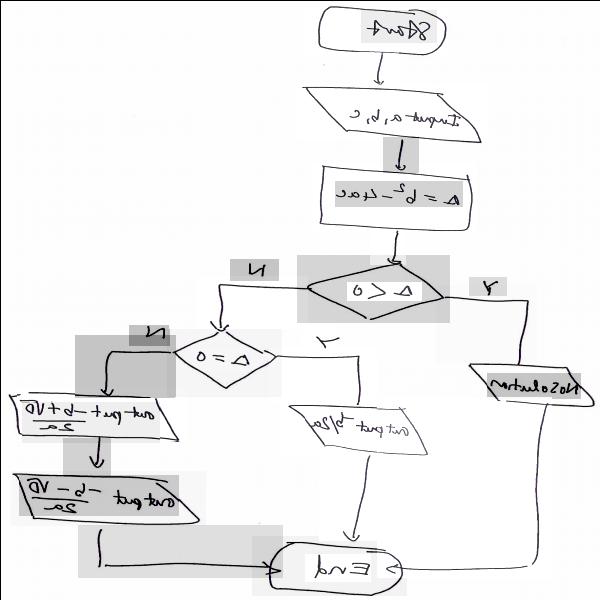 Start
Input a, b, c
Δ = b² - 4ac
Δ < 0
N
Y
Δ = 0
N
Y
No Solution
output -b/2a
output -b+√D / 2a
output -b-√D / 2a
End